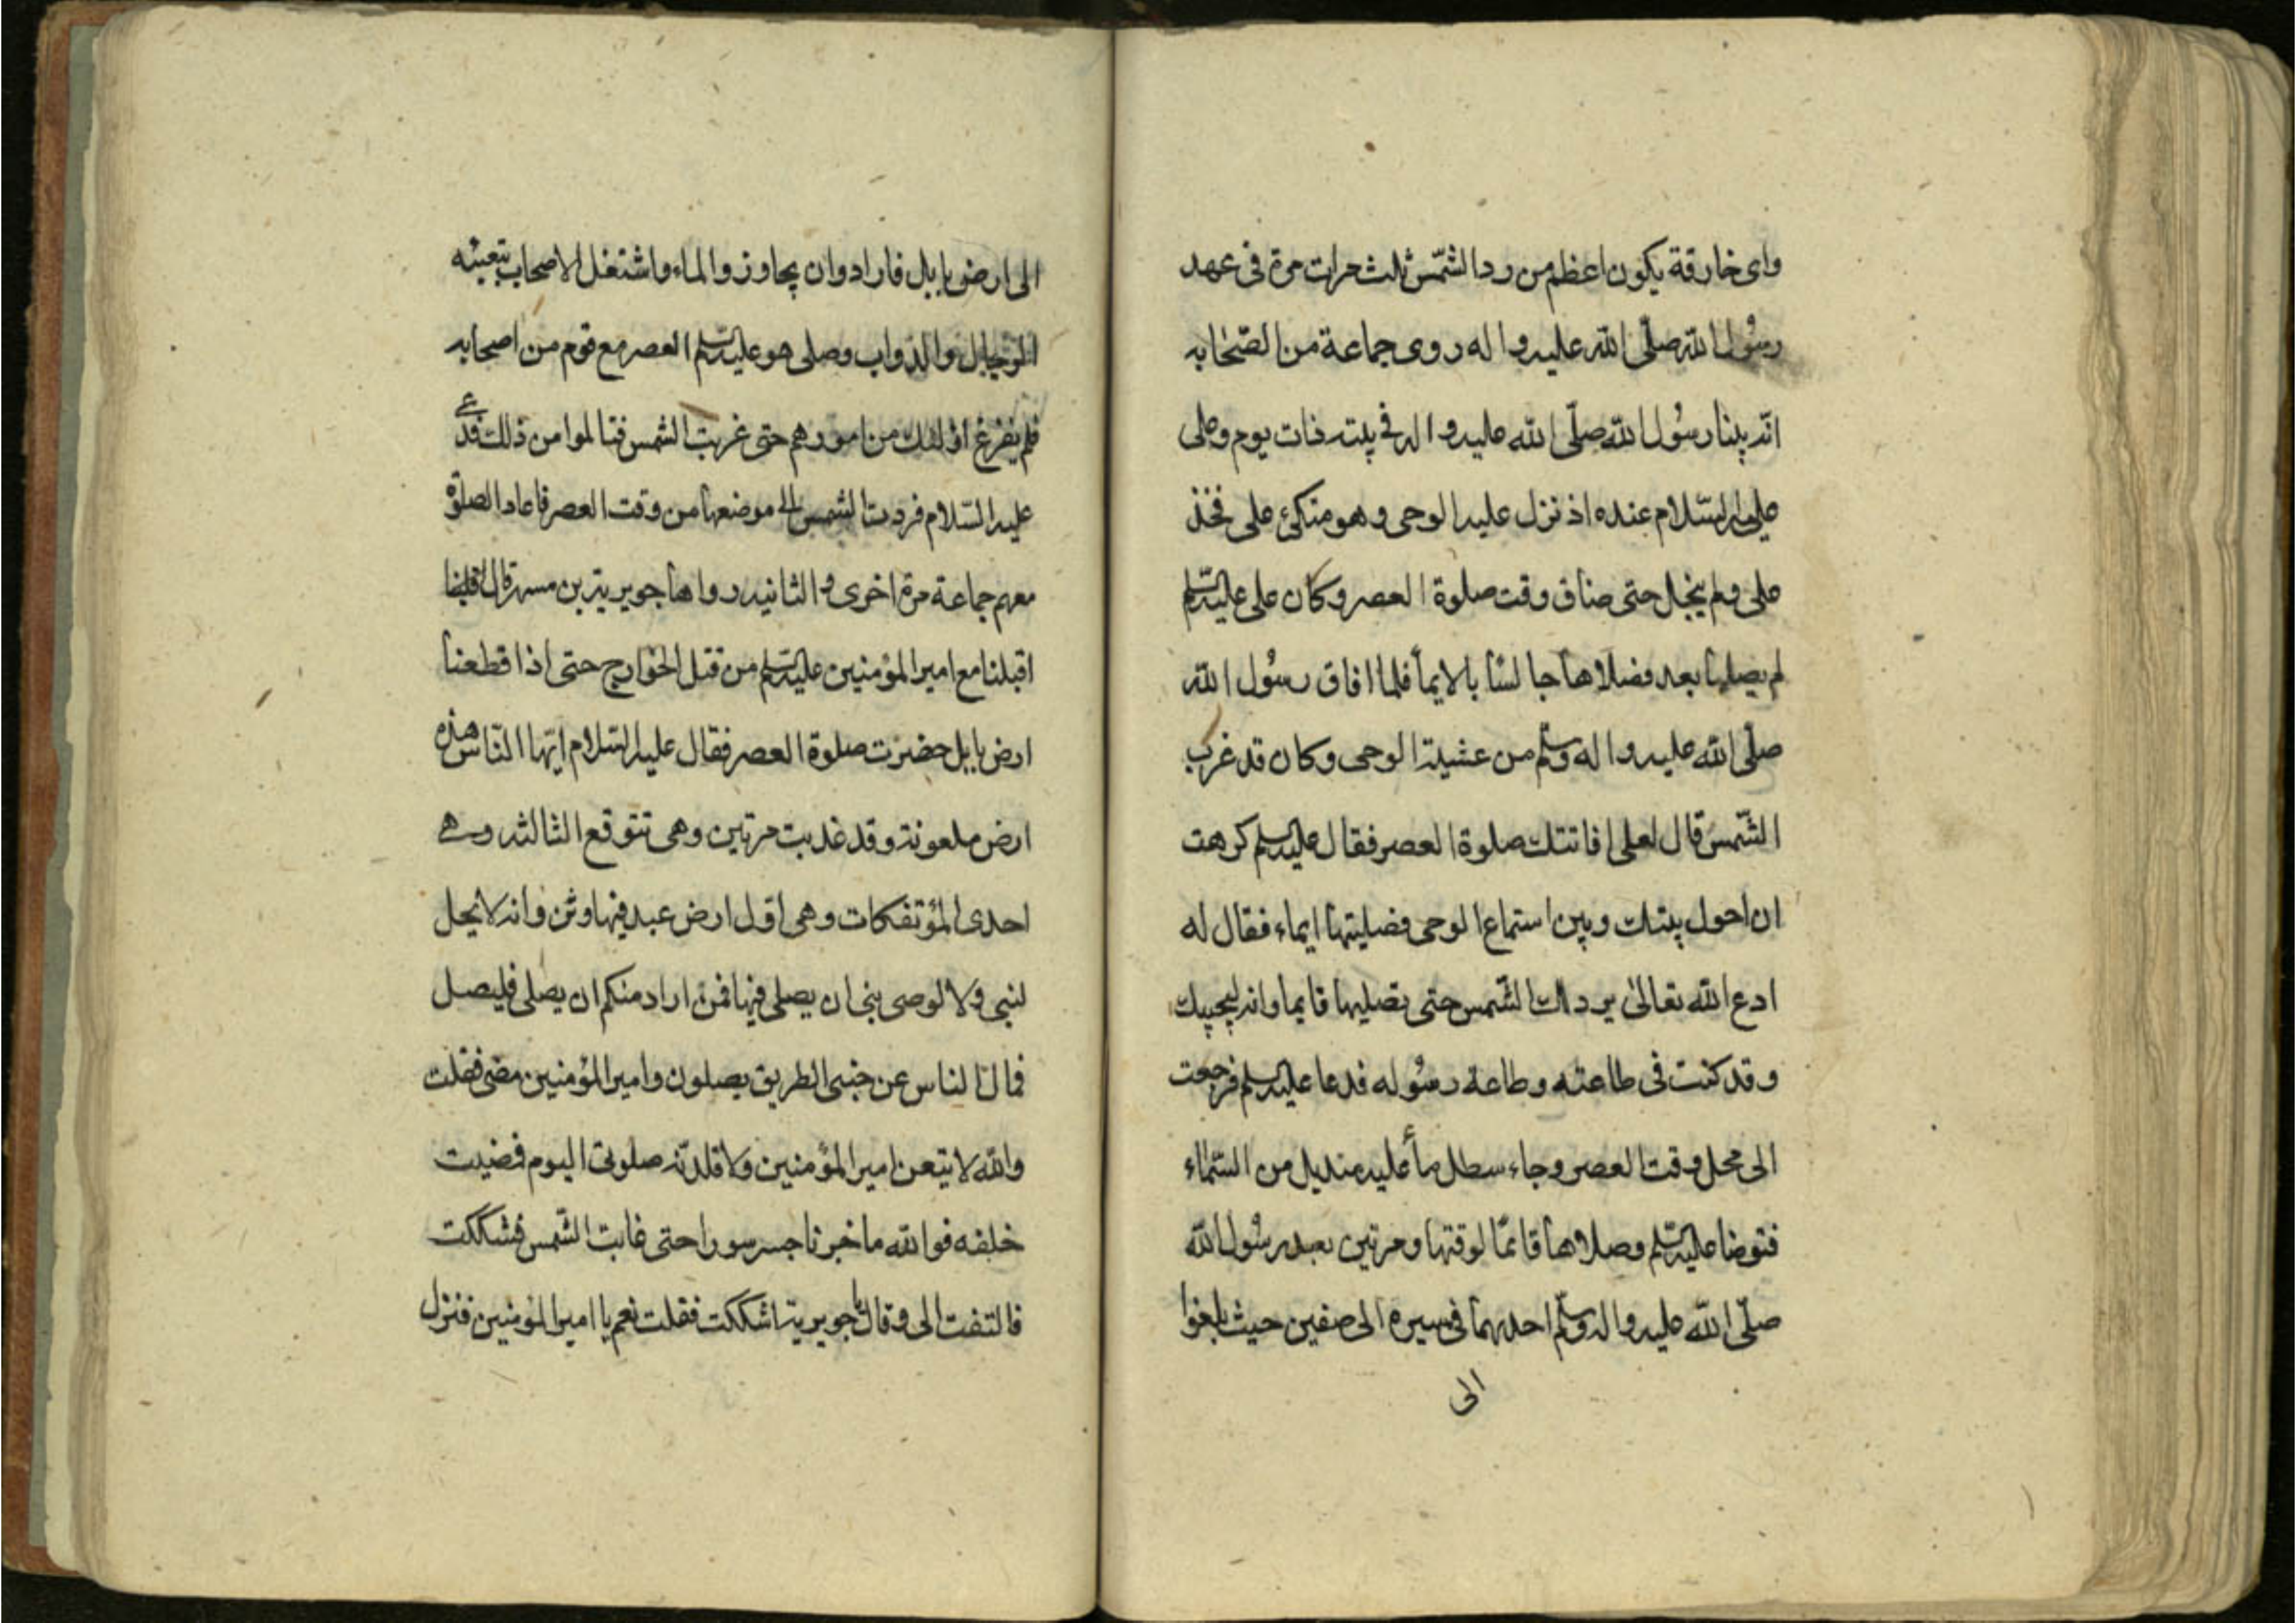 وای خارقة یکون اعظم من رد الشّمس ثلث مرات مرة فی عهد
رسُول اللّه صلّی اللّه علیه و اله روی جماعة من الصّحابه
انّه بینا رسُول اللّه صلّی اللّه علیه و اله فی بیته ذات یوم وعلی
علیه السّلام عنده اذ نزل علیه الوحی و هو متکئ علی فخذ
علی ولم ینجل حتی ضاق وقت صلوة العصر وکان علی علیه السّلم
لم یصلیها بعد فصلاها جالسًا بالایمأ فلما افاق رسُول اللّه
صلّی اللّه علیه و اله وسلّم من عشیة الوحی وکان قد غرب
الشّمس قال لعلی افاتتك صلوة العصر فقال علیه السلم کرهت
ان احول بینك وبین استماع الوحی فصلیتها ایماء فقال له
ادع اللّه تعالیٰ یرد لك الشّمس حتی تصلیها قایما وانه لیجیبك
وقد کنت فی طاعته وطاعة رسُوله فدعا علیه السلم فرجعت
الی محل وقت العصر وجاء سطل مأ علیه مندیل من السّمأء
فتوضا علیه السّلم وصلاها قائمًا لوقتها ومرتین بعد رسُول اللّه
صلّی اللّه علیه و اله وسلّم احدیهما فی سیره الی صفین حیث بلغوا
الی
الی ارض بابل فارادوان یجاوزوا الماء واشتغل الاصحاب بتعبئه
والدواب وصلی هو علیه السّلم العصر مع قوم من اصحابه
فلم یفرغ اولئك من امورهم حتی غربت الشمس فتالموا من ذلك فدعی
علیه السّلام فردت الشمس الی موضعها من وقت العصر فاعاد الصلوة
معهم جماعة مرة اخری و الثانیه رواها جویریة بن مسهر قال
اقبلنا مع امیر المؤمنین علیه السّلم من قتل الخوارج حتی اذا قطعنا
ارض بابل حضرت صلوة العصر فقال علیه السّلام ایّها النّاس هذه
ارض ملعونة وقد عذبت مرتین وهی تتوقع الثالثه وهی
احدی المؤتفکات وهی اوّل ارض عبد فیها وثن وانه لا یحل
لنبی ولا لوصی نبی ان یصلی فیها فمن اراد منکم ان یصلی فلیصل
فمال الناس عن جنبی الطریق یصلون وامیر المؤمنین مضی فقلت
واللّه لا یتبعن امیر المؤمنین ولا قلدنّه صلوتی الیوم فمضیت
خلفه فواللّه ما جزنا جسر سورا حتی غابت الشّمس فشککت
فالتفت الی وقال یا جویریة اشککت فقلت نعم یا امیر المؤمنین فنزل